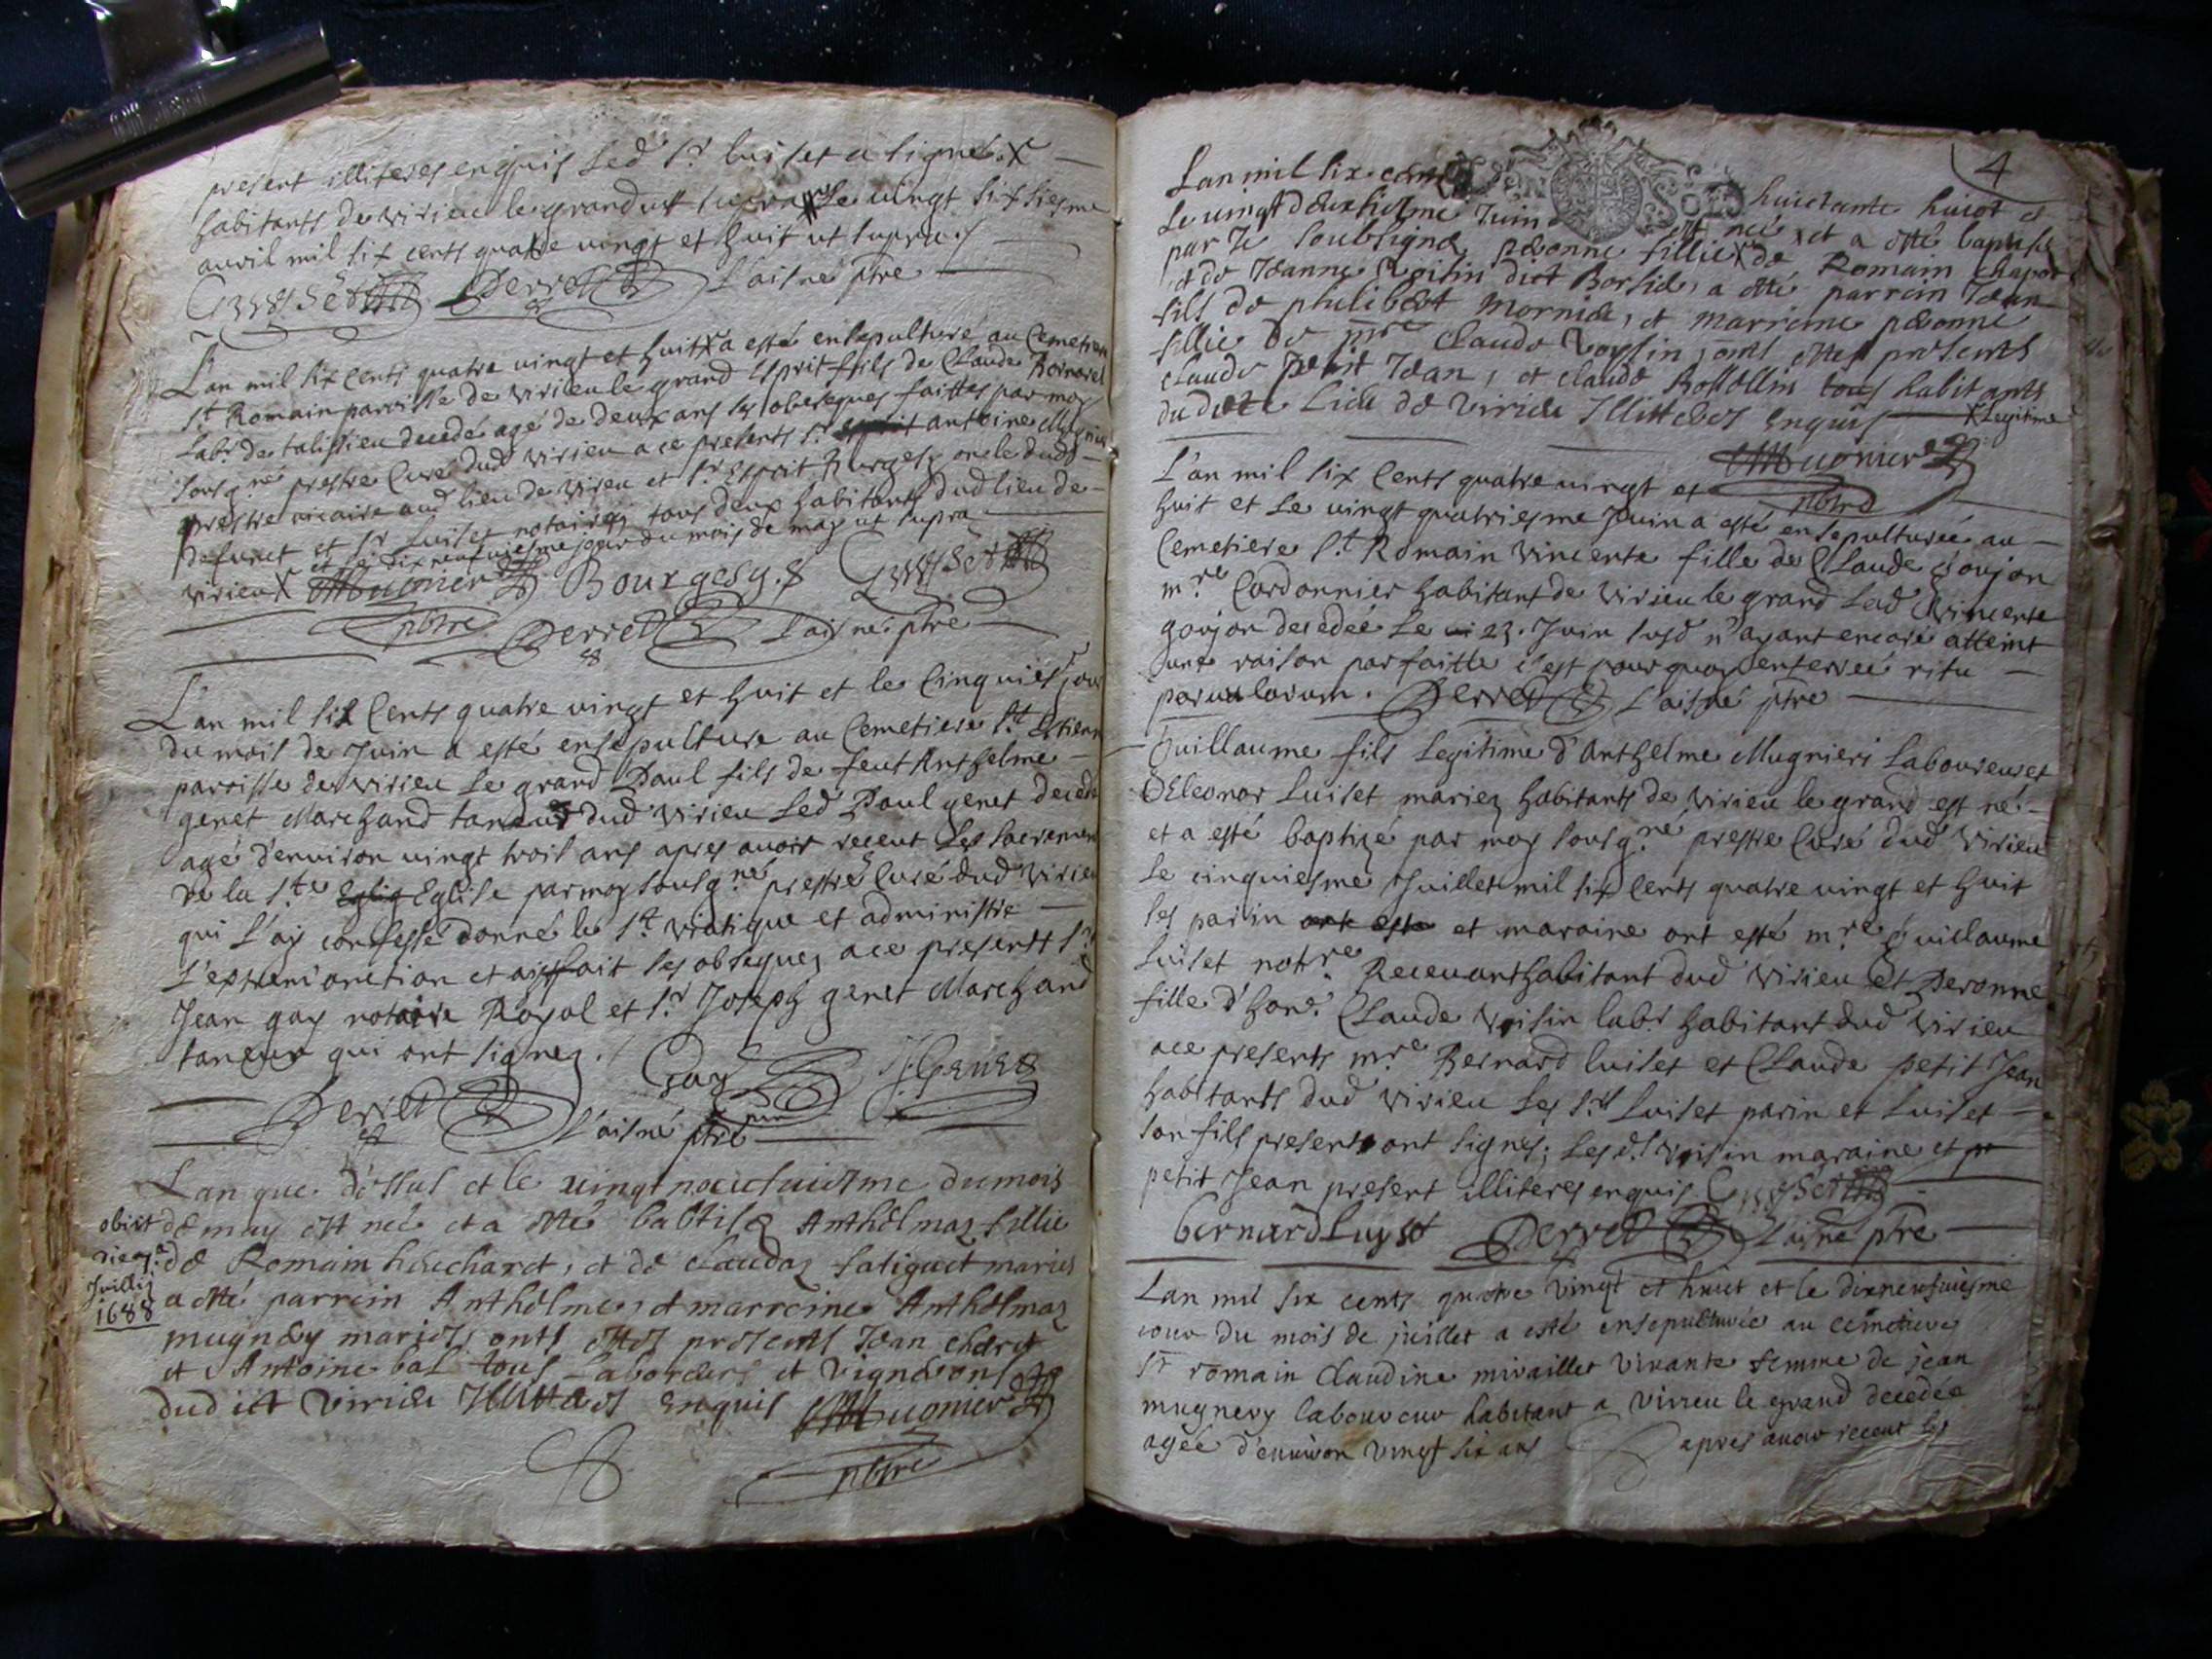 present illiteres enquis led Sr luiset a signé. X
habitants de virieu le grand ut supra X le vingt sixsiesme
avril mil six cents quatre vingt et huit ut supra
Luyset Perret L'aisné ptre
L'an mil six cents quatre vingt et huit X a esté ensepulturé au Cemetiere
St Romain paroisse de virieu le grand Esprit fils de Claude
Labr de talissieu decedé agé de deux ans les obseques faittes par moy
sousgné prestre Curé dud virieu a ce presents Sr antoine Mugnier
prestre vicaire aud lieu de virieu et Sr Esprit Burgesy oncle dudt
defunct et Sr Luiset notaire tous deux habitants dud lieu de
virieu X et le dixneufviesme jour du mois de may ut supra
MMugnier Bourgesy Luyset
pbtre Perret L'aisné ptre
L'an mil six Cents quatre vingt et huit et le Cinquies jour
du mois de Juin a esté ensepulture au Cemetiere St Estienne
paroisse de virieu le grand Paul fils de feut Anthelme
genet Marchand taneur dud virieu led Paul genet decedé
agé d'environ vingt trois ans apres avoir receut les sacrements
de la Ste Eglise Eglise par moy sousgné prestre Curé dud virieu
qui l'ay confessé donné le St viatique et administré
l'extrem'onction et ay fait ses obseques a ce presents Sr
Jean gay notaire Royal et Sr Joseph genet Marchand
taneur qui ont signez.
Gay J. Genet
Perret L'aisné ptre
Lan que dessus et le vingt neufuiesme du mois
de may est neé et a esté babtisée Anthelmaz fillie
de Romain huchard, et de Claudaz fatiguet mariés
a esté parrein Anthelme, et marreine Anthelmaz
mugnery mariés, onts estes presents Jean
et Antoine bal tous Laboreurs et vignerons
dudict Virieu Illitteres enquis MMugnier
pbtre
obiit
Juillij
1688
4
Lan mil six cents huictante huict et
Le vingt deuxhiesme Juin est neé X et a esté baptisée
par Je soubsigné, peronne fillie X de Romain
et de Jeanne Voisin dict Borside, a esté parrein Jean
fils de philibert mornieu, et marreine peronne
fillie de mre Claude Voysin, onts estes presents
Claude Petit Jean, et Claude Rosollin tous habitants
du dict Lieu de Virieu Illitteres enquis
X Legitime
MMugnier
pbtre
L'an mil six Cents quatre vingt et
huit et le vingt quatriesme Juin a esté ensepulturée au
Cemetiere St Romain vincente fille de Claude goujon
mre Cordonnier habitant de virieu le grand lad vincente
goujon decedée le 23. Juin susd n'ayant encore atteint
une raison parfaitte c'est pourquoy enterrée ritu
parvulorum. Perret L'aisné ptre
Guillaume fils Legitime d'Anthelme Mugnieri Laboureur et
d'Eleonor Luiset mariez habitants de virieu le grand est né
et a esté baptizé par moy sousgné prestre Curé dud virieu
le cinquiesme Juillet mil six Cents quatre vingt et huit
ses parin ont esté et maraine ont esté mre guillaume
Luiset notre Recevant habitant dud virieu et Peronne
fille d'hone Claude voisin labr habitant dud virieu
ace presents mre Bernard luiset et Claude petit Jean
habitants dud virieu les Srs Luiset parin et Luiset
son fils present ont signés; les d. voisin maraine et
petit Jean present illiteres enquis. Luyset
bernard Luyset Perret L'aisné ptre
Lan mil six cents quatre vingt et huict et le dixneufuiesme
jour du mois de juillet a esté ensepulturée au cemetiere
St romain Claudine miraillet vivante femme de jean
mugnery laboureur habitant a virieu le grand decedée
agée d'environ vingt six ans apres avoir receut les